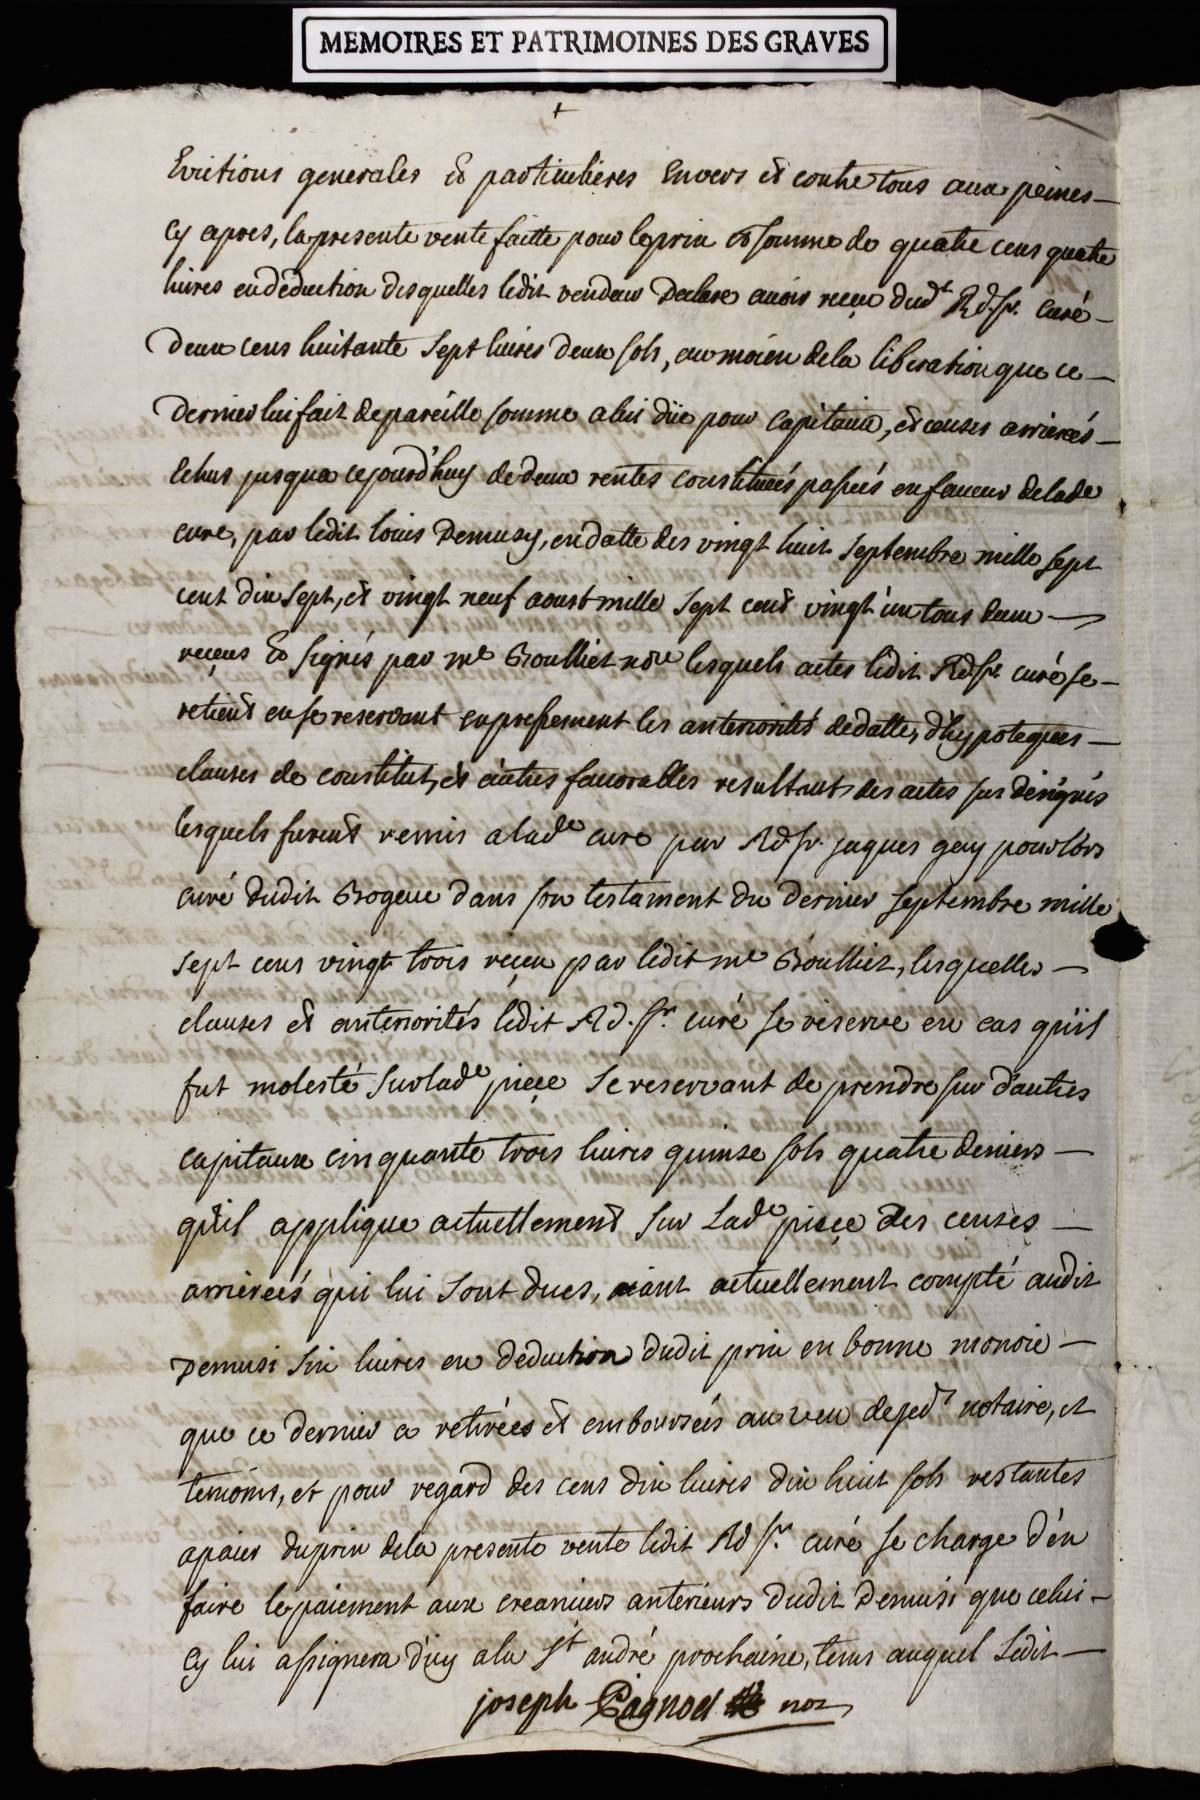 MEMOIRES ET PATRIMOINES DES GRAVES
Evictions generales et particulieres envers et contre tous aux peines
cy apres, la presente vente faitte pour le prix et somme de quatre cens quatre
livres en deduction desquelles ledit vendeur declare avoir reçeu dudt Rd. sr. curé
deux cens huitante sept livres deux sols, au moien de la liberation que ce
dernier lui fait de pareille somme a lui düe pour capitaux, et censes arrierés
echus jusqua ce jourd'huy de deux rentes constituées passées en faveur de lade
cure, par ledit louis Demusy, en datte des vingt huit septembre mille sept
cent dix sept, et vingt neuf aoust mille sept cent vingt un tous deux
reçeus et signés par me Broulliet nore lesquels actes ledit Rd. sr. curé se
retient en se reservant expressement les anteriorités de datte, d'hypoteques
clauses de constitut, et autres favorables resultants des actes sus désignés
lesquels furent remis a lade cure par Rd. sr. jaques gay pour lors
curé dudit Brogeue dans son testament du dernier septembre mille
sept cens vingt trois reçeu par ledit me Broulliet, lesquelles
clauses et anteriorités ledit Rd. sr. curé se reserve en cas qu'il
fut molesté sur lade piece se reservant de prendre sur d'autres
capitaux cinquante trois livres quinse sols quatre deniers
qu'il applique actuellement sur lade piece des censes
arrierées qui lui sont dues, aiant actuellement compté audit
Demusi six livres en deduction dudit prix en bonne monoie
que ce dernier a retirées et emboursées au veu de je dt notaire, et
temoins, et pour regard des cens dix livres dix huit sols restantes
a paier du prix de la presente vente ledit Rd sr. curé se charge d'en
faire le paiement aux creanciers anterieurs dudit Demusi que celui
cy lui assignera d'icy a la st andré prochaine, tems auquel ledit
joseph Pagnod nore